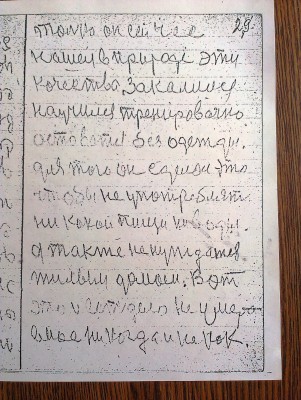 29
только он сейчес
нашел в природе эти
качества. Закалился
научился тренировачно
оставатся без одежды.
для того он сделал это
чтобы не употреблять
ни какой пищи ни воды.
а также не нуждатся
жилым домом. Вот
это и
никогда и не как.